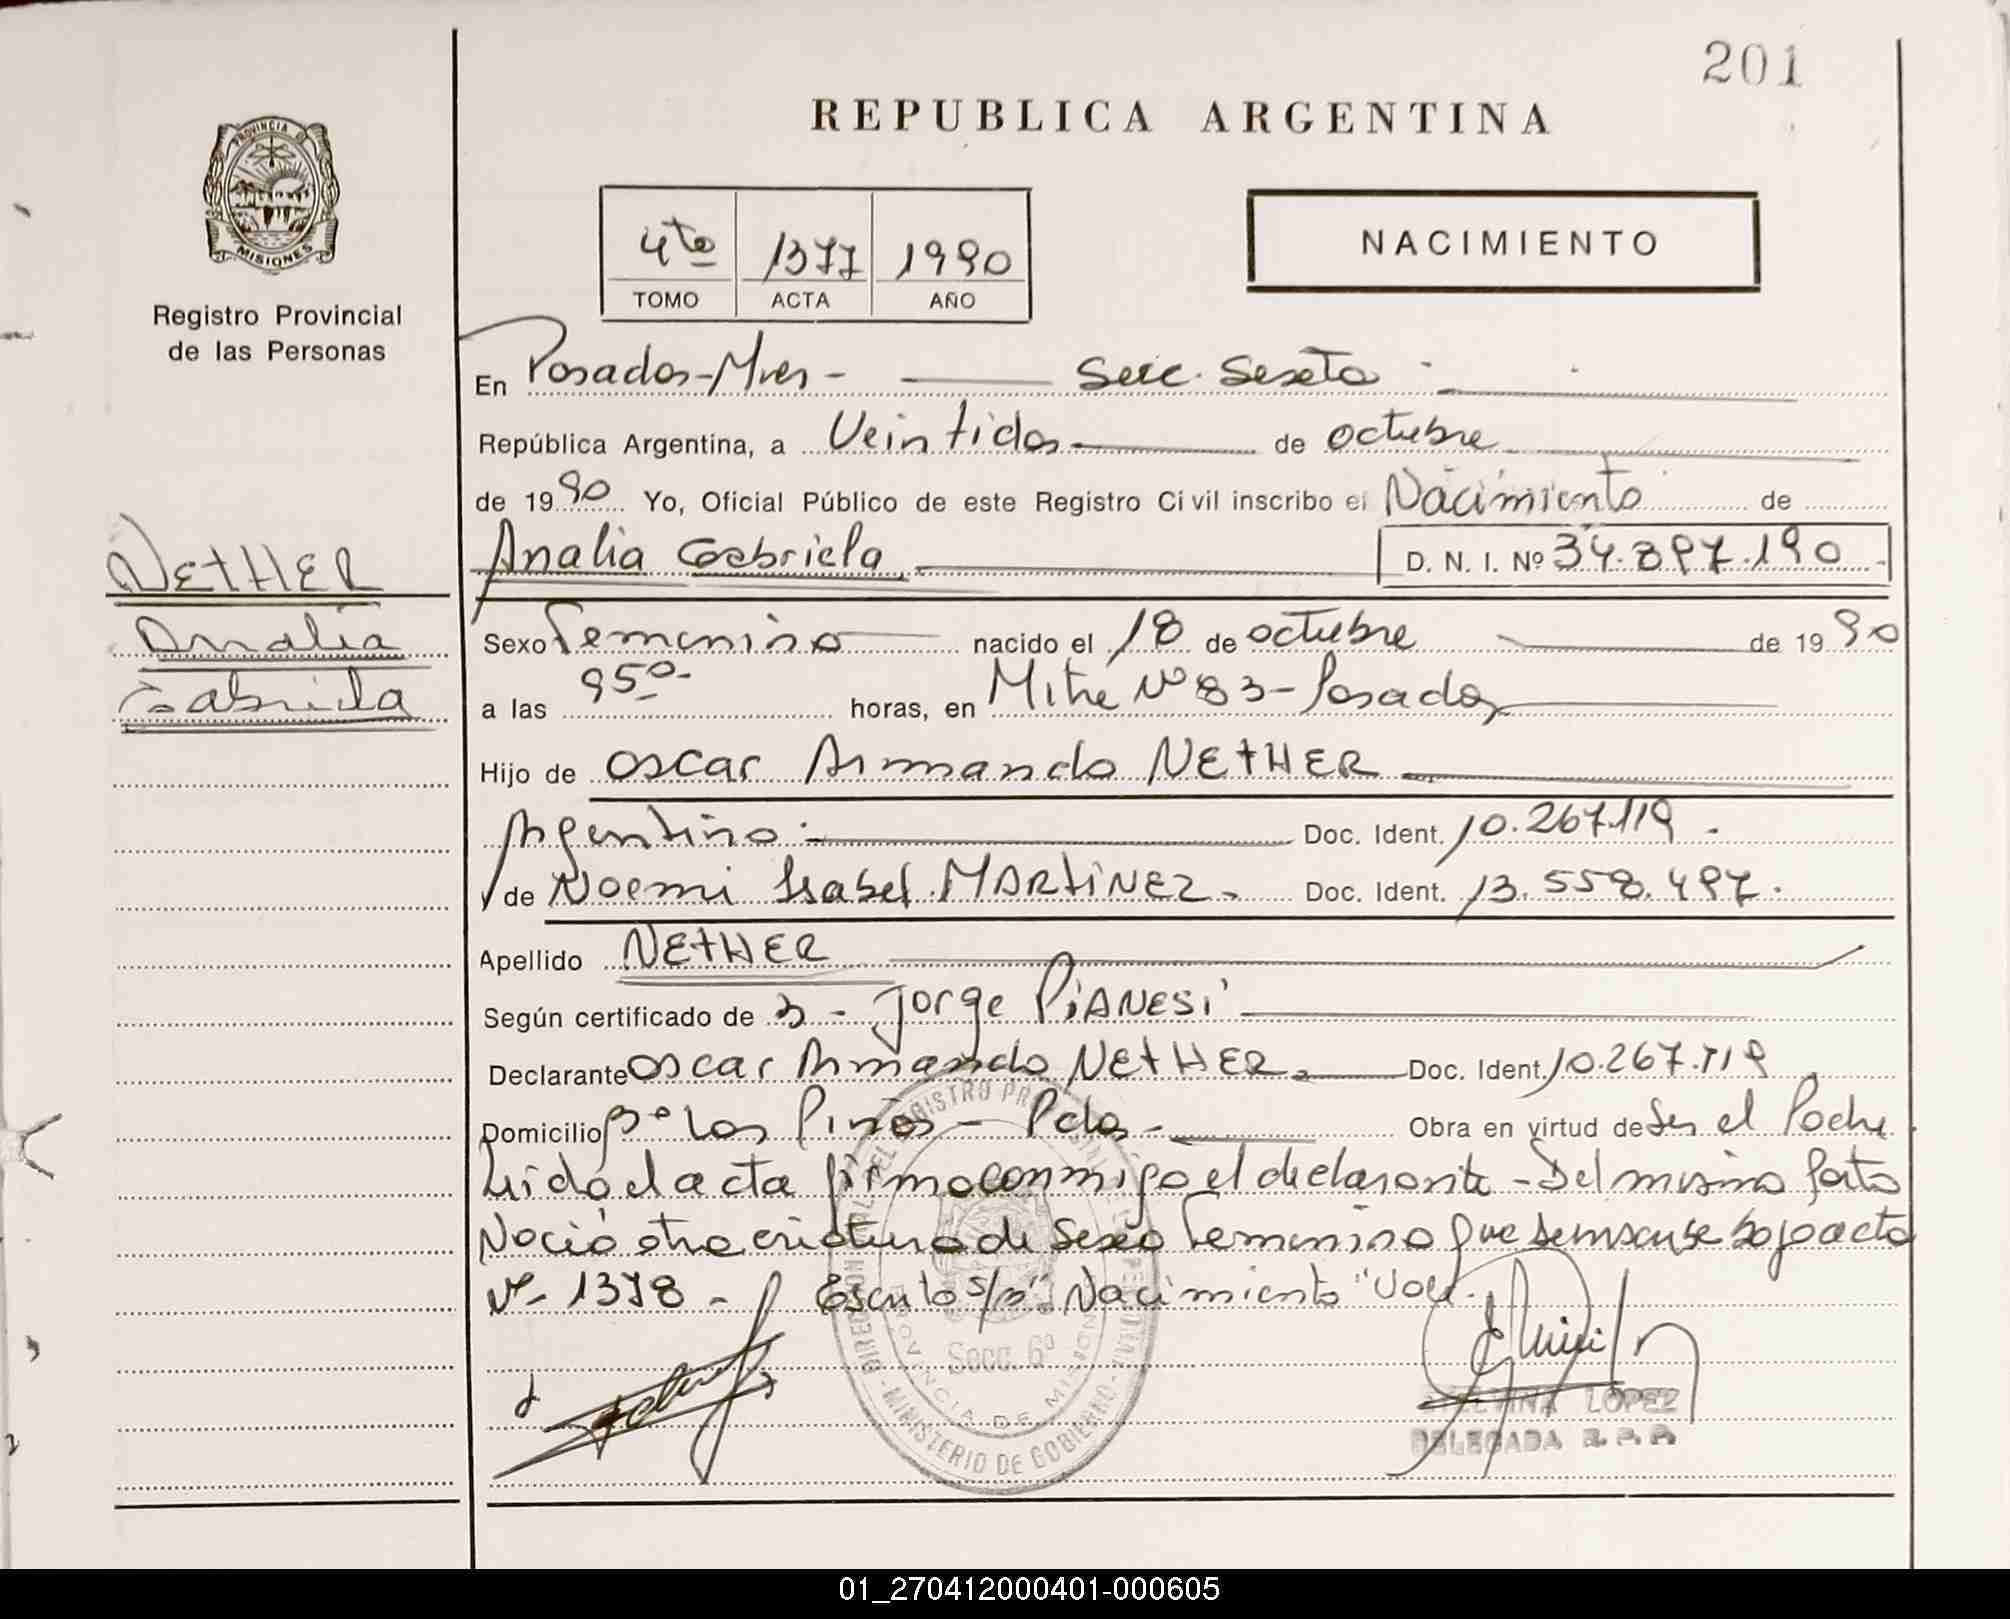 201
REPUBLICA ARGENTINA
PROVINCIA DE
MISIONES
Registro Provincial
de las Personas
4to 1377 1990
TOMO ACTA AÑO
NACIMIENTO
En Posadas-Mnes- Secc. Sexta
República Argentina, a Veintidos de octubre
de 1990 Yo, Oficial Público de este Registro Civil inscribo el Nacimiento de
NEtHER
Analia
Gabriela
Analia Gabriela D. N. I. Nº 34.897.190
Sexo Femenino nacido el 18 de octubre de 1990
a las 950- horas, en Mitre Nº 83-Posadas
Hijo de Oscar Armando NEtHER
Argentino- Doc. Ident. 10.267.119.
y de Noemi Isabel MARtiNEZ. Doc. Ident. 13.558.497.
Apellido NEtHER
Según certificado de Jorge PiANESi
Declarante Oscar Armando NEtHER. Doc. Ident. 10.267.119
Domicilio Bº Los Pinos- Pdas- Obra en virtud de Ser el Padre
Leida el acta firma conmigo el declarante-Del mismo parto
Nació otra criatura de Sexo Femenino que se inscribe bajo acta
Nº- 1378- Escrito s/r "Nacimiento" Vale.
DIRECCION GRAL DEL REGISTRO PROVINCIAL DE LAS PERSONAS
PROVINCIA DE MISIONES
Secc. 6º
- MINISTERIO DE GOBIERNO -
LOPEZ
DELEGADA R.P.P.
01_270412000401-000605